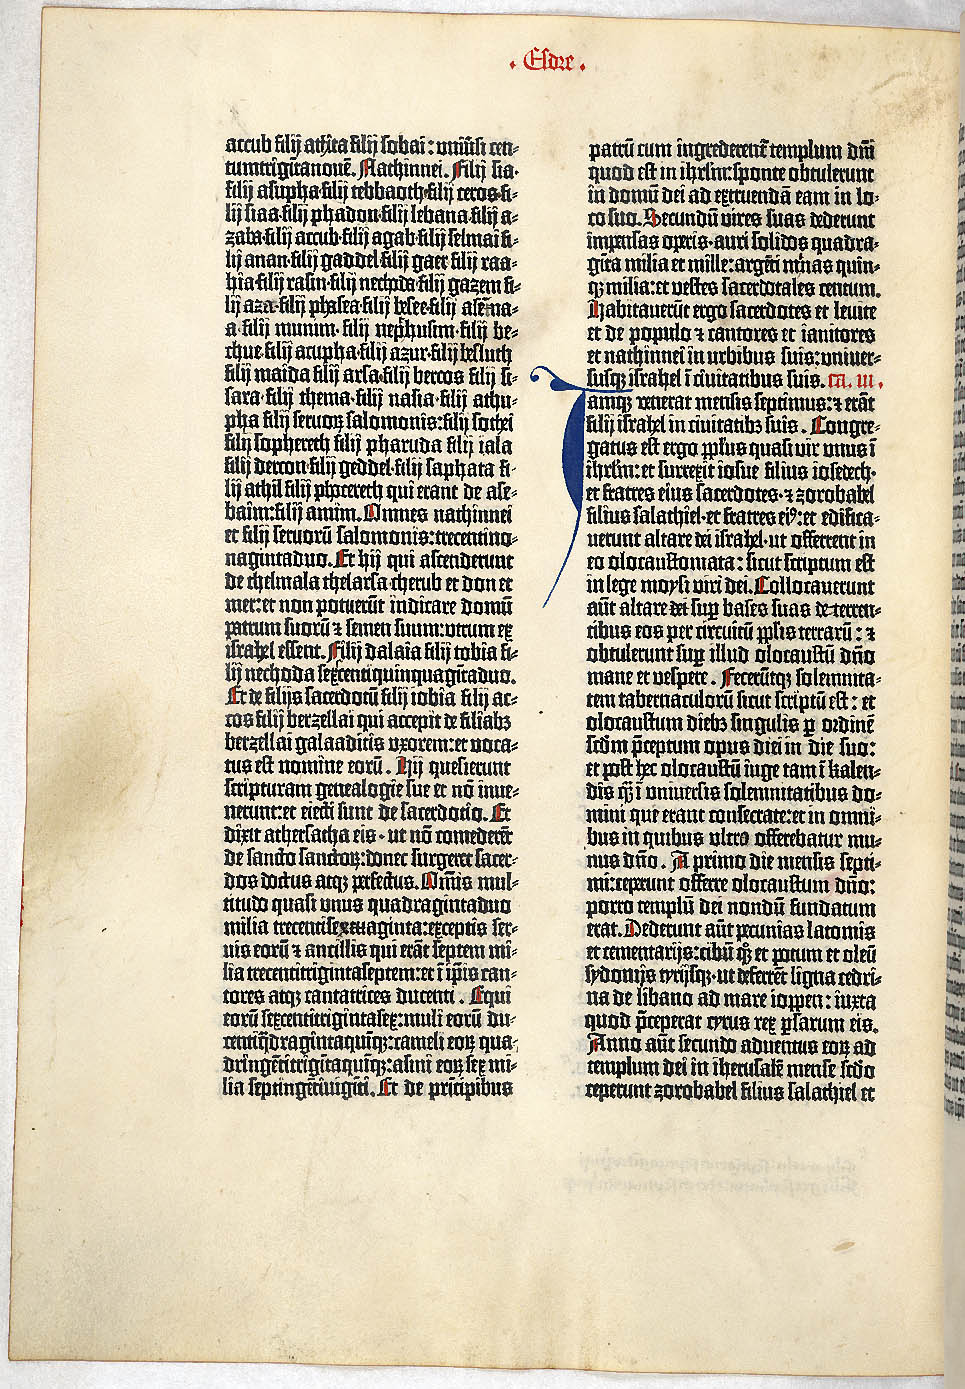 · Esdre ·
accub filij athita filij sobai : uniūsi cen⸗
tumtrigītanouē. Nathinnei. Filij sia·
filij asupha·filij tebbaoth·filij ceros·fi⸗
lij siaa·filij phadon·filij lebana·filij a⸗
zaba·filij accub·filij agab·filij selmai fi⸗
lij anan·filij gaddel·filij gaer filij raa⸗
hia·filij rasin·filij nechoda·filij gazem fi⸗
lij aza·filij phasea·filij besee·filij asēna⸗
a·filij munim·filij nephusim·filij be⸗
chue·filij acupha·filij azur·filij besluth
filij maida filij arsa·filij bercos filij si⸗
sara·filij thema·filij nasia·filij athu⸗
pha filij seruoꝝ salomonis:filij sothei
filij sophereth filij pharuda filij iala
filij dercon·filij geddel·filij saphata fi⸗
lij athil filij phocereth qui erant de ase⸗
baim:filij amim. Omnes nathinnei
et filij seruorū salomonis:trecentino⸗
nagintaduo. Et hij qui ascenderunt
de thelmala thelarsa·cherub et don et
mer:et non potuerūt indicare domū
patrum suorū ⁊ semen suum:utrum ex
israhel essent. Filij dalaia filij tobia fi⸗
lij nechoda sexcentiquinquagītaduo.
Et de filijs sacerdotū filij iobia filij ac⸗
cos filij berzellai qui accepit de filiabꝫ
berzellai galaaditis uxorem:et uoca⸗
tus est nomine eorū. Hij quesierunt
scripturam genealogie sue et nō inue⸗
nerunt:et eiecti sunt de sacerdotio. Et
dixit athersatha eis·ut nō comederēt
de sancto sanctoꝝ:donec surgeret sacer⸗
dos doctus atqꝫ perfectus. Omīs mul⸗
titudo quasi unus quadragintaduo
milia trecentisexaginta:exceptis ser⸗
uis eorū ⁊ ancillis qui erāt septem mi⸗
lia trecentitrigintaseptem:et ī ipīs can⸗
tores atqꝫ cantatrices ducenti. Equi
eorū sexcentitrigintasex:muli eorū du⸗
centiq̄dragintaquīqꝫ:cameli eoꝝ qua⸗
dringētitrigītaquīqꝫ:asini eoꝝ sex mi⸗
lia septingētiuigīti. Et de prīcipibus
patrū cum ingrederent̄ templum dn̄i
quod est in ihrl̄m:sponte obtulerunt
in domū dei ad extruendā eam in lo⸗
co suo. Secundū uires suas dederunt
impensas operis·auri solidos quadra⸗
gīta milia et mille:argēti mnas quin⸗
qꝫ milia:et uestes sacerdotales centum.
Habitauerūt ergo sacerdotes et leuite
et de populo ⁊ cantores et ianitores
et nathinnei in urbibus suis:uniuer⸗
susqꝫ israhel ī ciuitatibus suis. ca. iii.
Iamqꝫ venerat mensis septimus:⁊ erāt
filij israhel in ciuitatibꝫ suis. Congre⸗
gatus est ergo ppl̄us quasi vir unus ī
ihrl̄m:et surrexit iosue filius iosedech·
et fratres eius sacerdotes·⁊ zorobabel
filius salathiel·et fratres eiꝰ:et edifica⸗
uerunt altare dei israhel·ut offerrent in
eo olocaustomata: sicut scriptum est
in lege moysi viri dei. Collocauerunt
aūt altare dei sup̱ bases suas deterren⸗
tibus eos per circuitū pp̄lis terrarū : ⁊
obtulerunt sup̱ illud olocaustū dn̄o
mane et uespere. Fecerūtqꝫ solemnita⸗
tem tabernaculorū sicut scriptū est : et
olocaustum diebꝫ singulis p̱ ordinē
scd̄m p̄ceptum opus diei in die suo:
et post hec olocaustū iuge tam ī kalen⸗
dis q̄ȝ ī uniuersis solemnitatibus do⸗
mini que erant consecrate:et in omni⸗
bus in quibus ultro offerebatur mu⸗
nus dn̄o. A primo die mensis septi⸗
mi:ceperunt offerre olocaustum dn̄o:
porro templū dei nondū fundatum
erat. Dederunt aūt pecunias latomis
et cementarijs:cibū qꝫ et potum et oleū
sydonijs tyrijsqꝫ·ut deferrēt ligna cedri⸗
na de libano ad mare ioppen: iuxta
quod p̄ceperat cyrus rex p̱sarum eis.
Anno aūt secundo aduentus eoꝝ ad
templum dei in iherusalē mense scd̄o
ceperunt zorobabel filius salathiel et